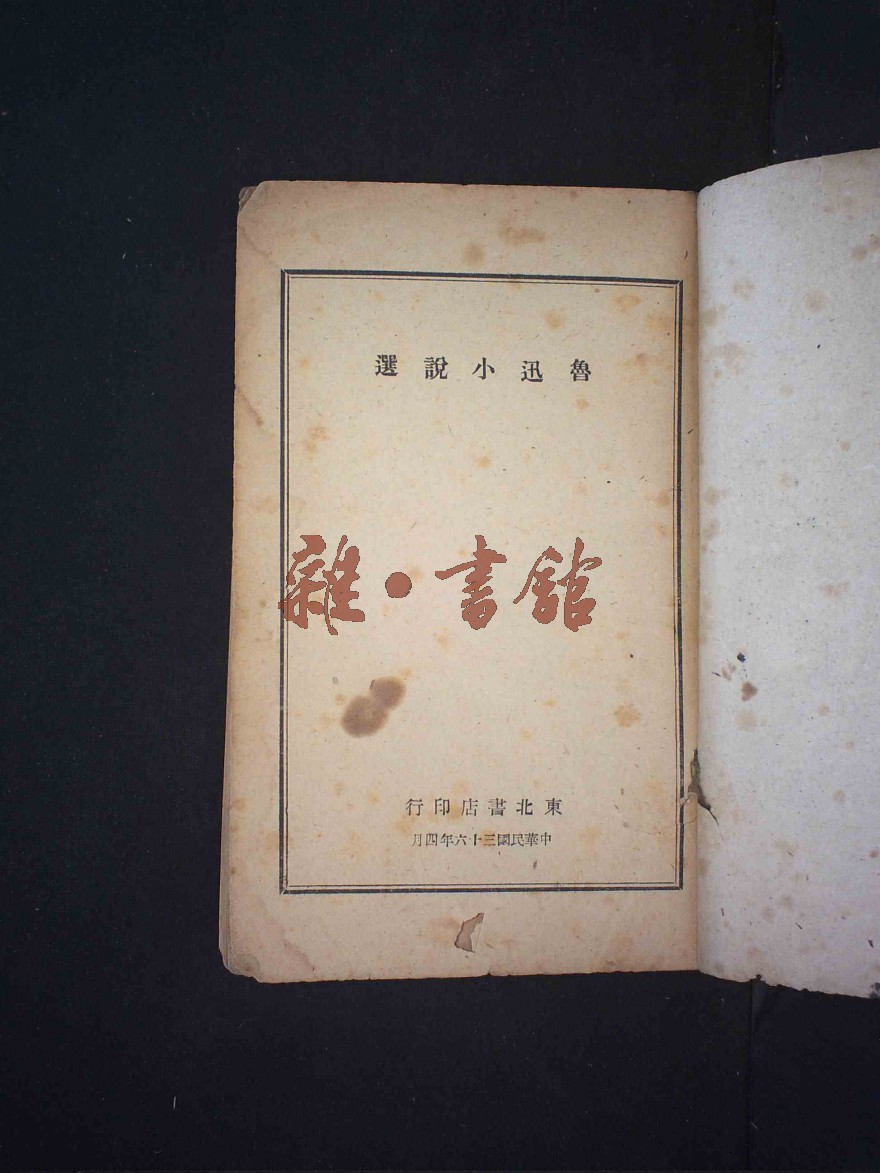 魯迅小說選
雜·書館
東北書店印行
中華民國三十六年四月